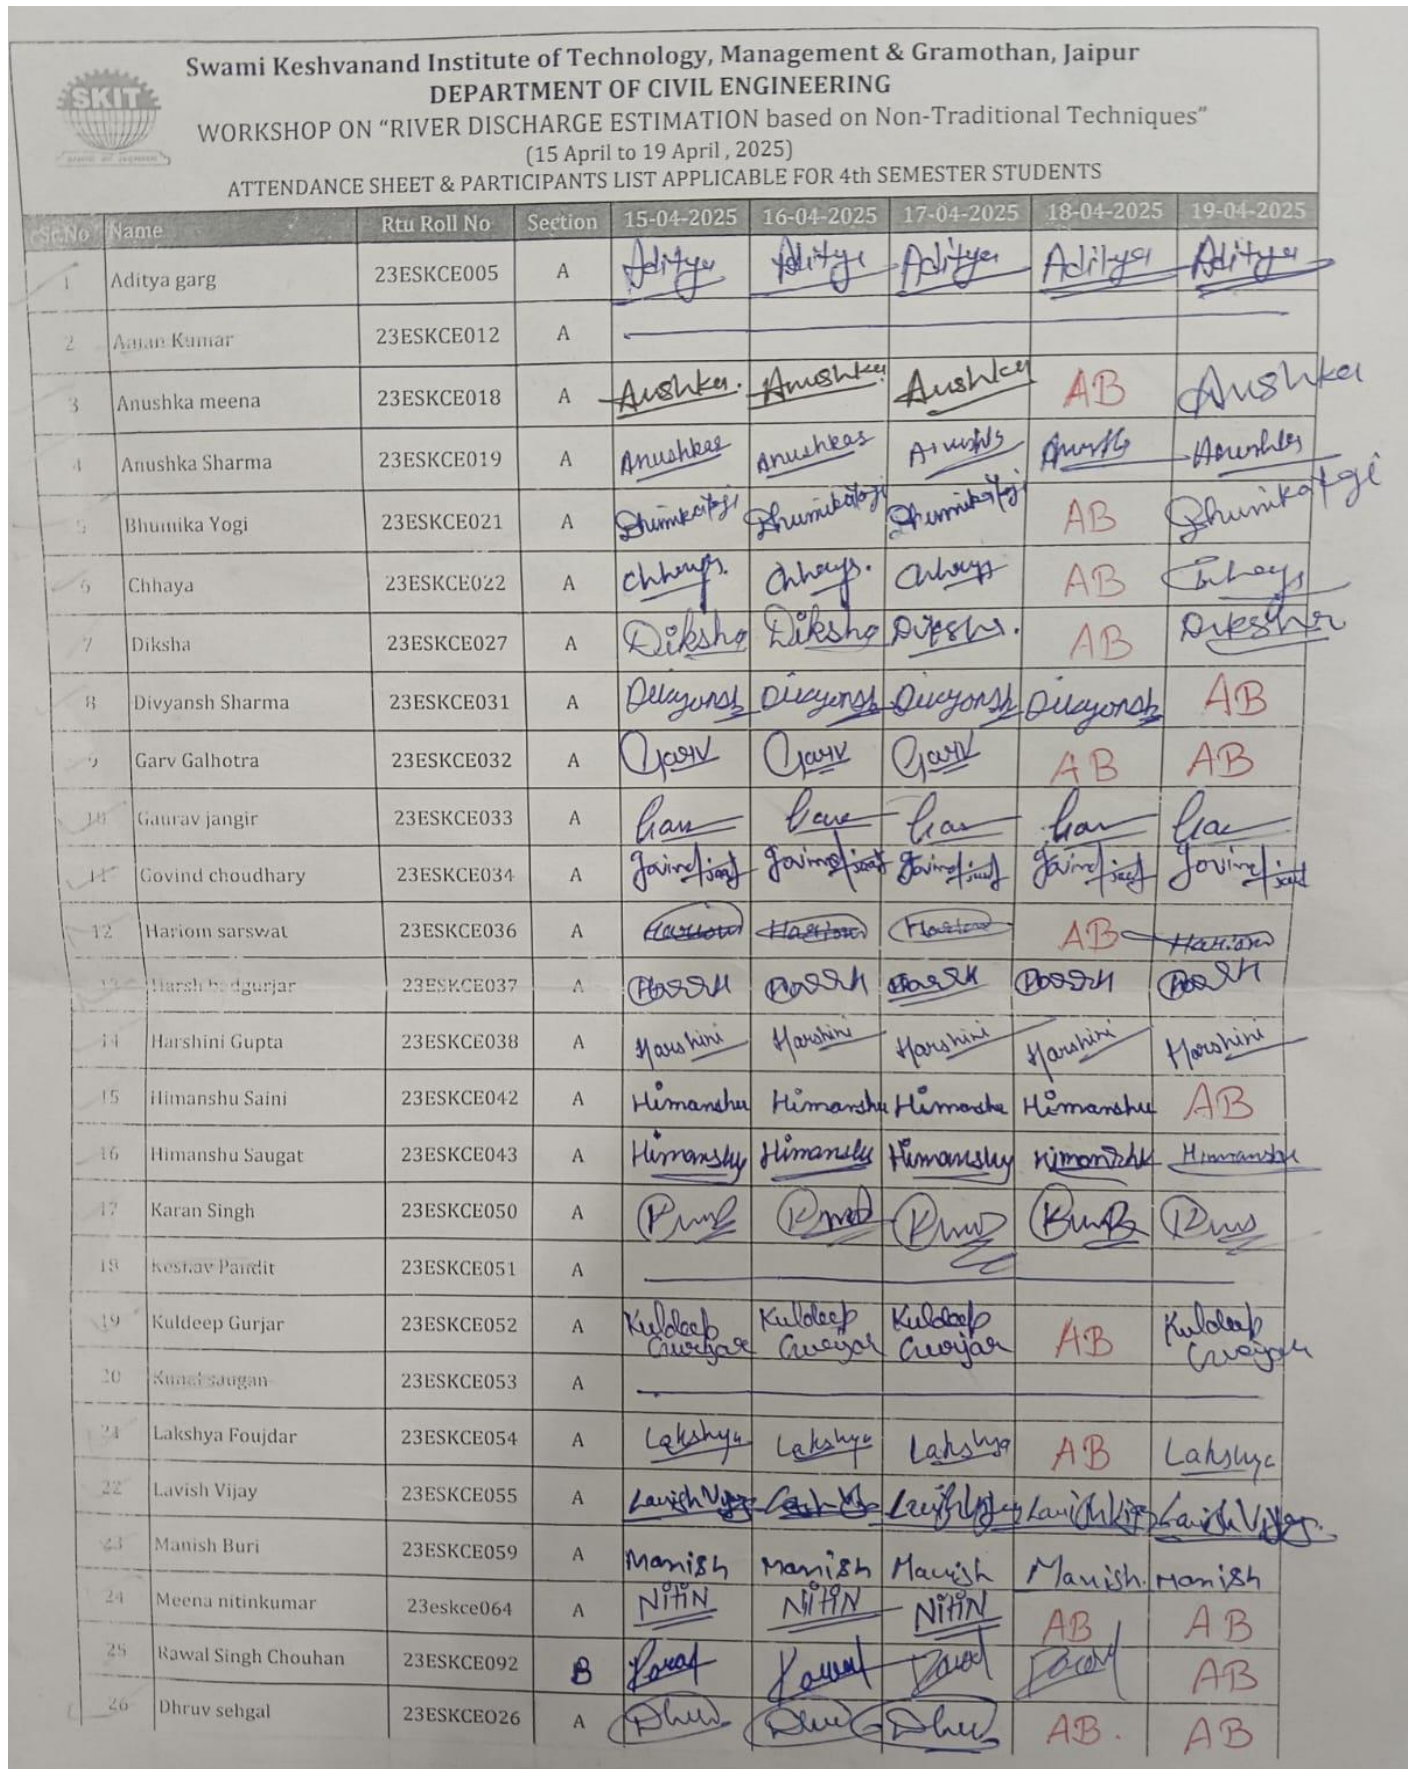 SKIT
Swami Keshvanand Institute of Technology, Management & Gramothan, Jaipur
DEPARTMENT OF CIVIL ENGINEERING
WORKSHOP ON “RIVER DISCHARGE ESTIMATION based on Non-Traditional Techniques”
(15 April to 19 April , 2025)
ATTENDANCE SHEET & PARTICIPANTS LIST APPLICABLE FOR 4th SEMESTER STUDENTS
Sr.No Name Rtu Roll No Section 15-04-2025 16-04-2025 17-04-2025 18-04-2025 19-04-2025
1 Aditya garg 23ESKCE005 A Aditya Aditya Aditya Aditya Aditya
2 Aman Kumar 23ESKCE012 A
3 Anushka meena 23ESKCE018 A Anushka. Anushka Anushka AB Anushka
4 Anushka Sharma 23ESKCE019 A Anushkas Anushkas
5 Bhumika Yogi 23ESKCE021 A BhumikaYogi BhumikaYogi BhumikaYogi AB BhumikaYogi
6 Chhaya 23ESKCE022 A Chhaya. Chhaya. Chhaya AB Chhaya
7 Diksha 23ESKCE027 A Diksha Diksha Diksha. AB Diksha
8 Divyansh Sharma 23ESKCE031 A Divyansh Divyansh Divyansh Divyansh AB
9 Garv Galhotra 23ESKCE032 A Garv Garv Garv AB AB
10 Gaurav jangir 23ESKCE033 A
11 Govind choudhary 23ESKCE034 A Govind Govind Govind Govind Govind
12 Hariom sarswat 23ESKCE036 A Hariom Hariom Hariom AB Hariom
13 Harsh badgurjar 23ESKCE037 A Harsh Harsh Harsh Harsh Harsh
14 Harshini Gupta 23ESKCE038 A Harshini Harshini Harshini Harshini Harshini
15 Himanshu Saini 23ESKCE042 A Himanshu Himanshu Himanshu Himanshu AB
16 Himanshu Saugat 23ESKCE043 A Himanshu Himanshu Himanshu Himanshu Himanshu
17 Karan Singh 23ESKCE050 A
18 Keshav Pandit 23ESKCE051 A
19 Kuldeep Gurjar 23ESKCE052 A Kuldeep Gurjar Kuldeep Gurjar Kuldeep Gurjar AB Kuldeep Gurjar
20 Kunal saugan 23ESKCE053 A
21 Lakshya Foujdar 23ESKCE054 A Lakshya Lakshya Lakshya AB Lakshya
22 Lavish Vijay 23ESKCE055 A Lavish Vijay Lavish Vijay Lavish Vijay Lavish Vijay
23 Manish Buri 23ESKCE059 A Manish Manish Manish Manish. Manish
24 Meena nitinkumar 23eskce064 A NitiN NitiN NitiN AB AB
25 Rawal Singh Chouhan 23ESKCE092 B Rawal Rawal Rawal Rawal AB
26 Dhruv sehgal 23ESKCEO26 A Dhruv Dhruv Dhruv AB. AB